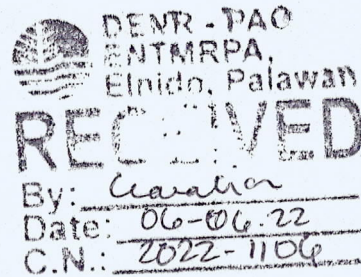 DENR - PAO
ENTMRPA,
Elnido, Palawan
RECEIVED
By:
Date: 06-06-22
C.N.: 2022-1106